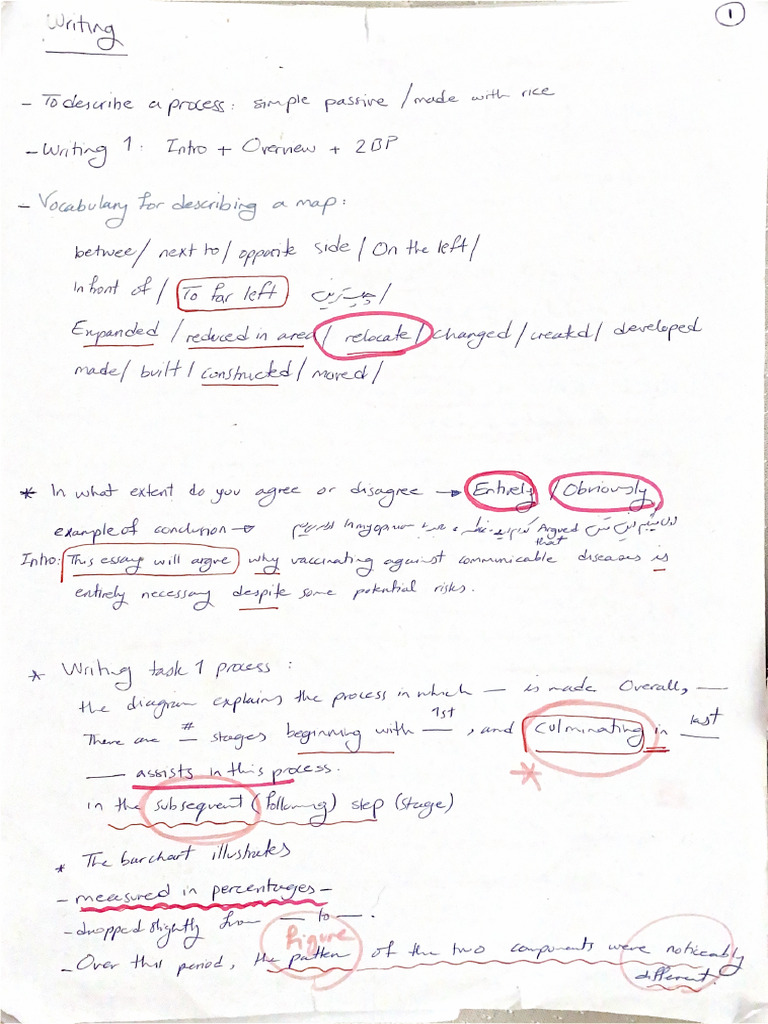 Writing
1
- To describe a process: simple passive / made with rice
- Writing 1: Intro + Overview + 2BP
- Vocabulary for describing a map:
betwee/ next to/ opposite side / On the left/
in front of / To far left چپ ترین /
Expanded / reduced in area/ relocate / changed / created / developed
made/ built / constructed / moved /
* In what extent do you agree or disagree → Entirely / Obviously
example of conclusion → In my opinion Argued
that
Intro: This essay will argue why vaccinating against communicable diseases is
entirely necessary despite some potential risks.
* Writing task 1 process:
the diagram explains the process in which — is made Overall, —
There are # stages beginning with 1st, and culminating in last
— assists in this process.
*
in the subsequent (following) step (stage)
* The barchart illustrates
- measured in percentages -
- dropped slightly from — to —.
figure
- Over this period, the pattern of the two components were noticeably
different.